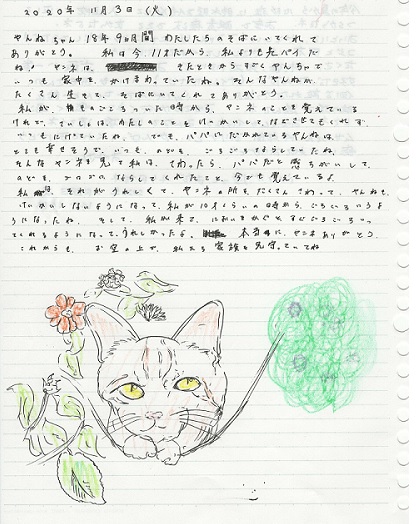 2020年 11月 3日 (火)
やんねちゃん 18年9ヵ月間 わたしたちのそばにいてくれて
ありがとう。 私は今、11才だから、私よりも先パイだ
ね! ヤンネは、 きたときからすごくやんちゃで
いつも、家中を、かけまわっていたね。そんなやんねが、
たくさん生きて、そばにいてくれてありがとう。
私が、一番ものごころついた時から、ヤンネのことを覚えている
けれど、さいしょは、わたしのことをけいかいして、なでさせてもくれず、
いつもにげていたね。 でも、パパにだかれているやんねは、
とても幸せそうで、いつも、のどを、ごろごろならしていたね。
そんなヤンネを見て私は、さわったら、パパだと感ちがいして、
のどを、ゴロゴロならしてくれたこと、今でも覚えているよ。
私は、それがうれしくて、ヤンネの所を、たくさんさわって、やんねも、
けいかいしないようになって、私が10才くらいの時から、ごろごろいうよ
うになったね。そして、私が来て、においをかぐとすぐごろごろいっ
てくれるようになって、うれしかったよ。 本当に、ヤンネありがとう。
これからも、お空の上で、私たち家族を見守っていてね